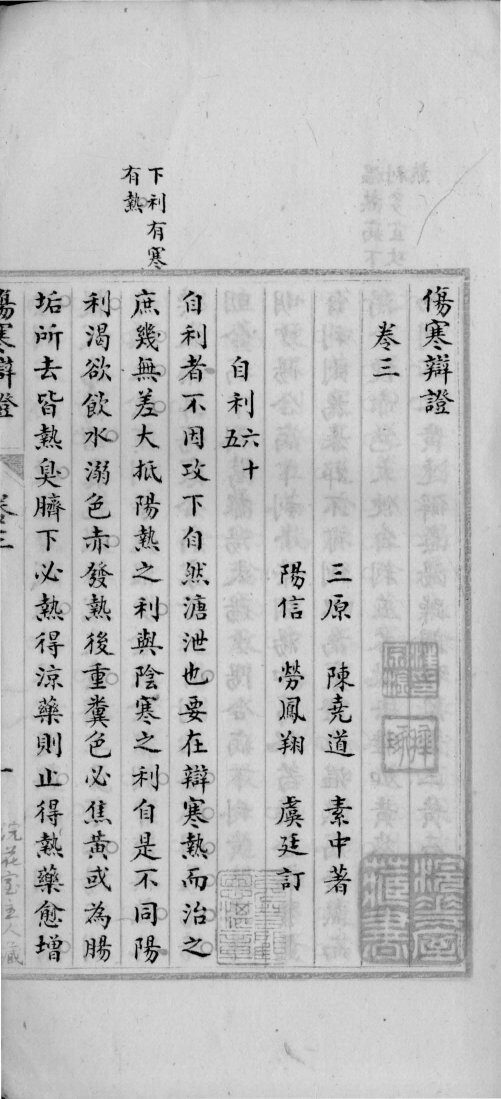 傷寒辯證
卷三
三原　陳堯道　素中著
陽信　勞鳳翔　虞廷訂
自利六十五
下利有寒
有熱
自利者不因攻下自然溏泄也要在辯寒熱而治之
庶幾無差大抵陽熱之利與陰寒之利自是不同陽
利渴欲飲水溺色赤發熱後重糞色必焦黃或為腸
垢所去皆熱臭臍下必熱得涼藥則止得熱藥愈增
傷寒辯證
卷三
一
浣花室主人藏